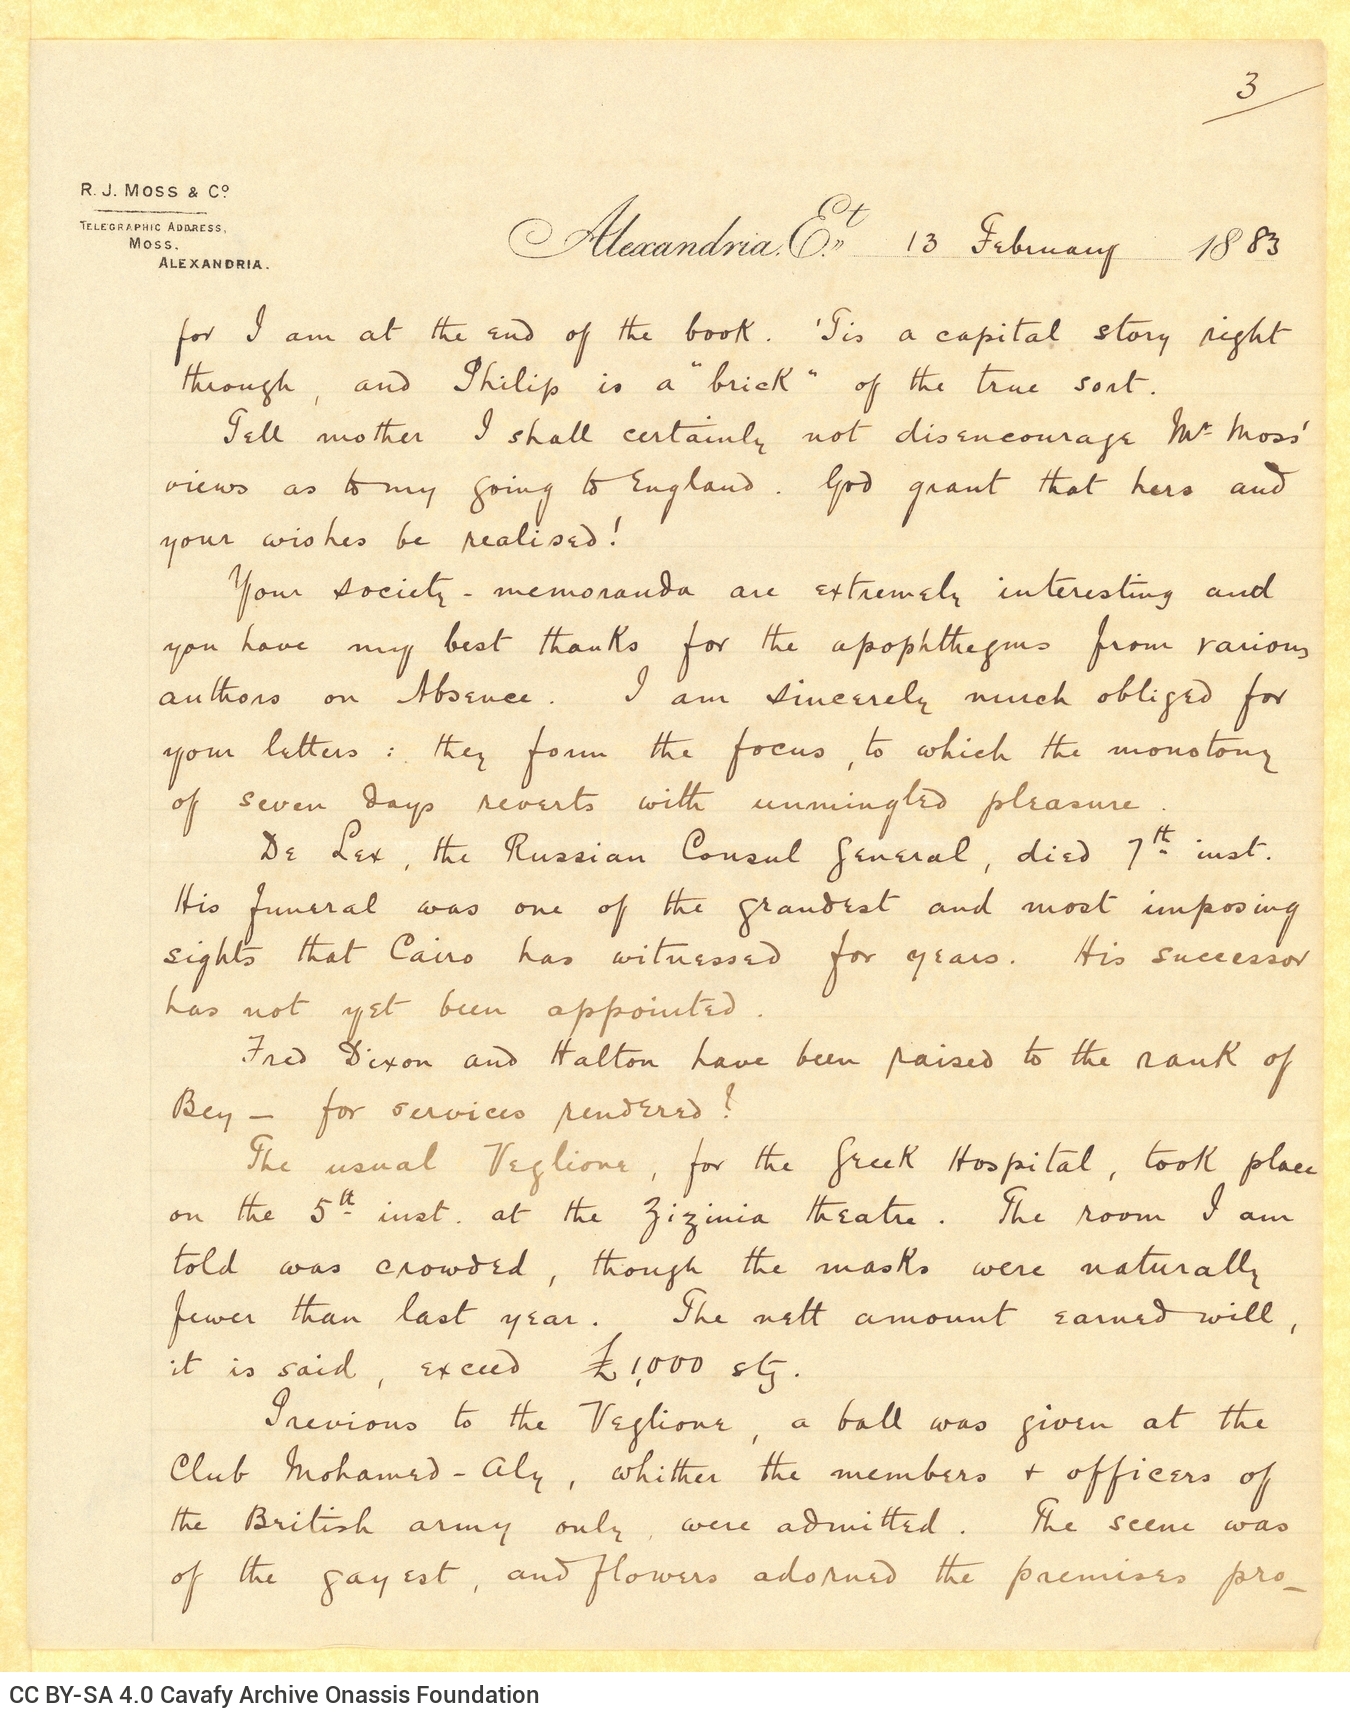 3
R. J. MOSS & Cº
TELEGRAPHIC ADDRESS,
MOSS.
ALEXANDRIA.
Alexandria. Et. 13 February 1883
for I am at the end of the book. 'Tis a capital story right
through, and Philip is a "brick" of the true sort.
Tell mother I shall certainly not disencourage Mr Moss'
views as to my going to England. God grant that hers and
your wishes be realised!
Your society-memoranda are extremely interesting and
you have my best thanks for the apophthegms from various
authors on Absence. I am sincerely much obliged for
your letters: they form the focus, to which the monotony
of seven days reverts with unmingled pleasure.
De Lex, the Russian Consul General, died 7th inst.
His funeral was one of the grandest and most imposing
sights that Cairo has witnessed for years. His successor
has not yet been appointed.
Fred Dixon and Halton have been raised to the rank of
Bey — for services rendered?
The usual Veglione, for the Greek Hospital, took place
on the 5th inst. at the Zizinia theatre. The room I am
told was crowded, though the masks were naturally
fewer than last year. The nett amount earned will,
it is said, exceed £1,000 stg.
Previous to the Veglione, a ball was given at the
Club Mohamed-Aly, whither the members + officers of
the British army only, were admitted. The scene was
of the gayest, and flowers adorned the premises pro-
CC BY-SA 4.0 Cavafy Archive Onassis Foundation